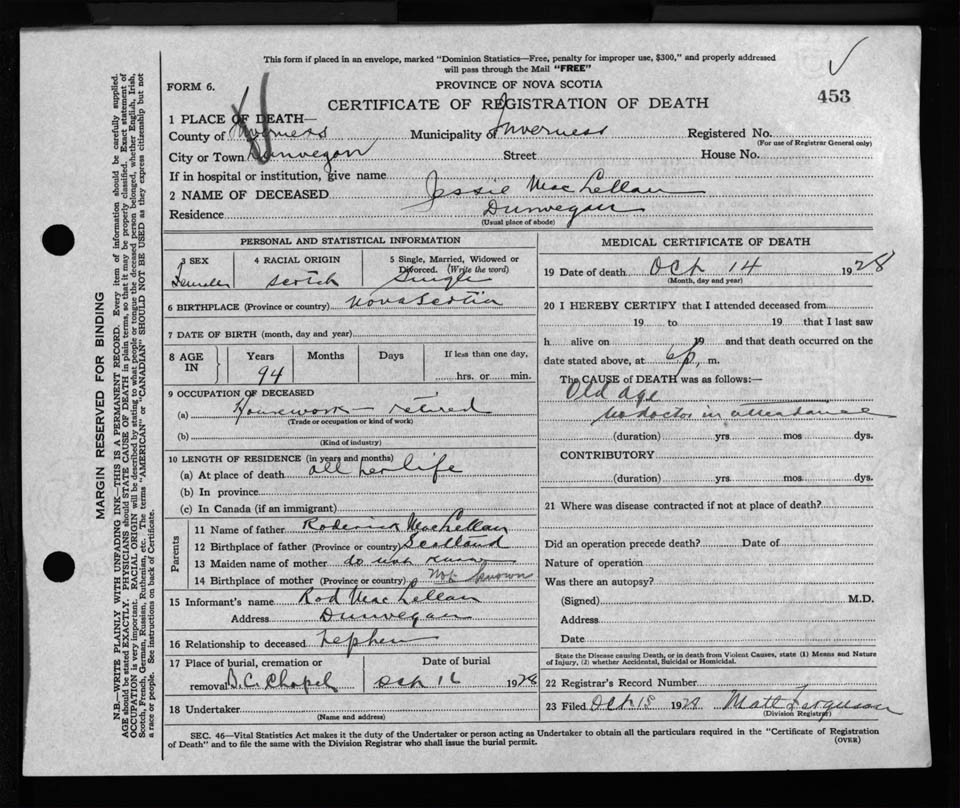 This form if placed in an envelope, marked "Dominion Statistics—Free, penalty for improper use, $300," and properly addressed
will pass through the Mail "FREE"
FORM 6.
PROVINCE OF NOVA SCOTIA
CERTIFICATE OF REGISTRATION OF DEATH
453
1 PLACE OF DEATH—
County of Inverness Municipality of Inverness Registered No.
(For use of Registrar General only)
City or Town Dunvegan Street House No.
If in hospital or institution, give name
2 NAME OF DECEASED Jessie MacLellan
Residence Dunvegan
(Usual place of abode)
PERSONAL AND STATISTICAL INFORMATION
3 SEX 4 RACIAL ORIGIN 5 Single, Married, Widowed or
Divorced. (Write the word)
Female Scotch Single
6 BIRTHPLACE (Province or country) Nova Scotia
7 DATE OF BIRTH (month, day and year)
8 AGE IN Years Months Days If less than one day,
94 hrs. or min.
9 OCCUPATION OF DECEASED
(a) Housework — retired
(Trade or occupation or kind of work)
(b)
(Kind of industry)
10 LENGTH OF RESIDENCE (in years and months)
(a) At place of death all her life
(b) In province
(c) In Canada (if an immigrant)
Parents
11 Name of father Roderick MacLellan
12 Birthplace of father (Province or country) Scotland
13 Maiden name of mother do not know
14 Birthplace of mother (Province or country) Not known
15 Informant's name Rod MacLellan
Address Dunvegan
16 Relationship to deceased nephew
17 Place of burial, cremation or Date of burial
removal B.C. Chapel Oct 16 1928
18 Undertaker
(Name and address)
MEDICAL CERTIFICATE OF DEATH
19 Date of death Oct 14 1928
(Month, day and year)
20 I HEREBY CERTIFY that I attended deceased from
19 to 19 that I last saw
h alive on 19 and that death occurred on the
date stated above, at 6 p. m.
The CAUSE of DEATH was as follows:—
Old age
no doctor in attendance
(duration) yrs mos dys.
CONTRIBUTORY
(duration) yrs mos dys.
21 Where was disease contracted if not at place of death?
Did an operation precede death? Date of
Nature of operation
Was there an autopsy?
(Signed) M.D.
Address
Date
State the Disease causing Death, or in death from Violent Causes, state (1) Means and Nature
of Injury, (2) whether Accidental, Suicidal or Homicidal.
22 Registrar's Record Number
23 Filed Oct 15 1928 Matt Ferguson
(Division Registrar)
SEC. 46—Vital Statistics Act makes it the duty of the Undertaker or person acting as Undertaker to obtain all the particulars required in the "Certificate of Registration
of Death" and to file the same with the Division Registrar who shall issue the burial permit.
(OVER)
MARGIN RESERVED FOR BINDING
N.B.—WRITE PLAINLY WITH UNFADING INK—THIS IS A PERMANENT RECORD. Every item of information should be carefully supplied.
AGE should be stated EXACTLY. PHYSICIANS should STATE CAUSE OF DEATH in plain terms, so that it may be properly classified. Exact statement of
OCCUPATION is very important. RACIAL ORIGIN will be described by stating to what people or tongue the deceased person belonged, whether English, Irish,
Scotch, French, German, Russian, Ruthenian, etc. The terms "AMERICAN" or "CANADIAN" SHOULD NOT BE USED as they express citizenship but not
a race or people. See instructions on back of Certificate.